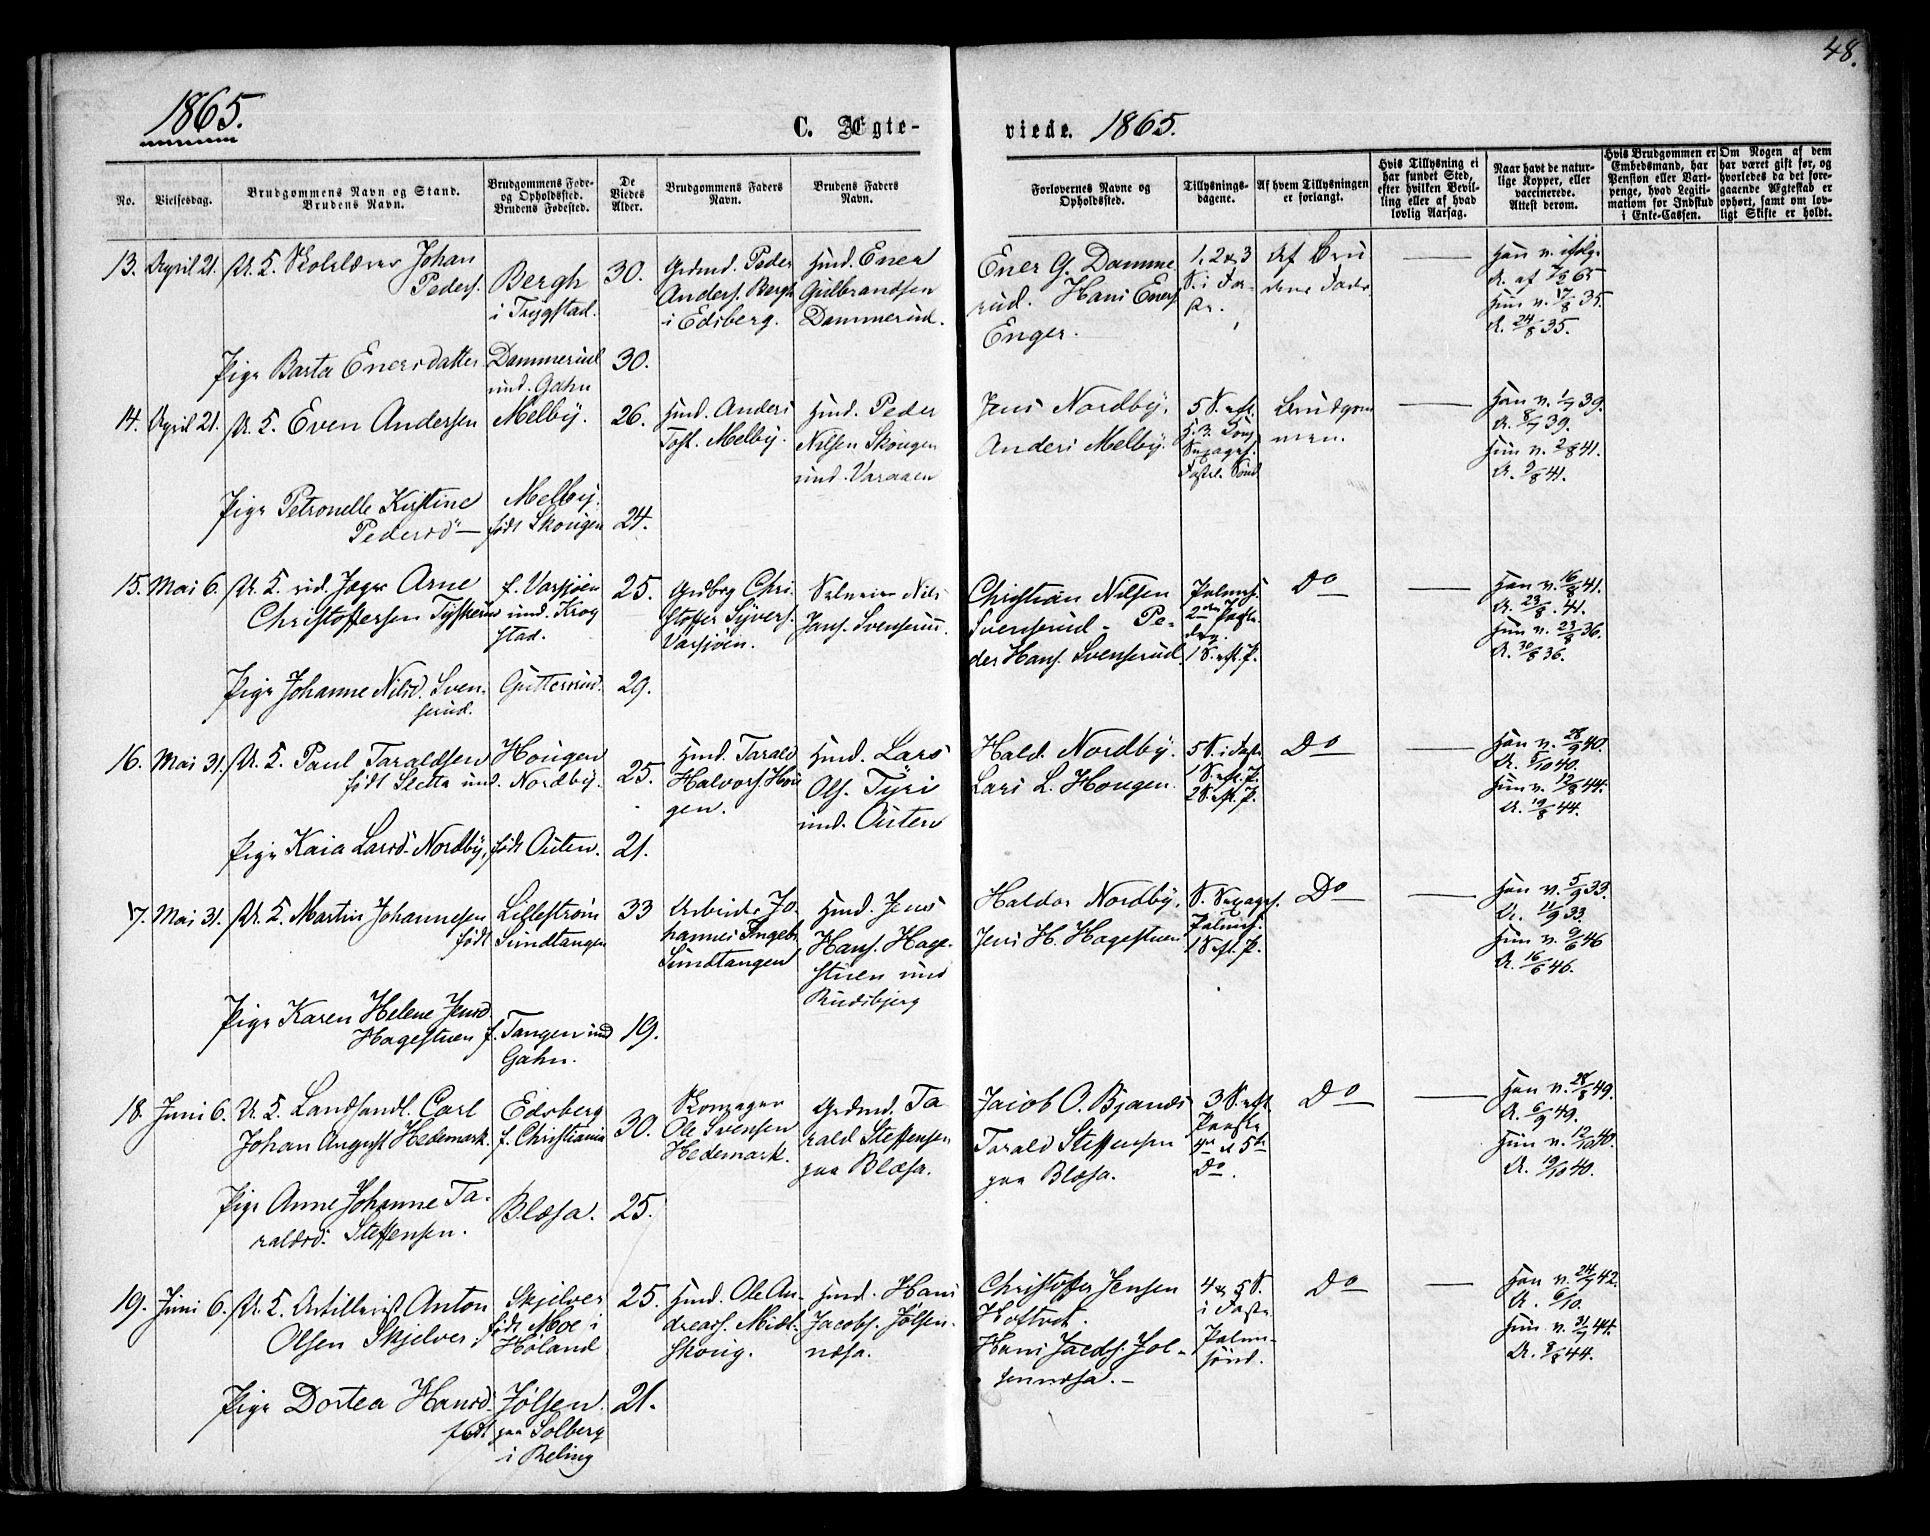 48.
1865.
C. Ægte-
viede. 1865.
No.
Vielsesdag.
Brudgommens Navn og Stand.
Brudens Navn.
Brudgommens Føde-
og Opholdssted.
Brudens Fødested.
De
Viedes
Alder.
Brudgommens Faders
Navn.
Brudens Faders
Navn.
Forlovernes Navne og
Opholdssted.
Tillysnings-
dagene.
Af hvem Tillysningen
er forlangt.
Hvis Tillysning ei
har fundet Sted,
efter hvilken Bevil-
ling eller af hvad
lovlig Aarsag.
Naar havt de natur-
lige Kopper, eller
vaccinerede.
Attest derom.
Hvis Brudgommen er
Embedsmand, har
Pension eller Vart-
penge, hvad Legiti-
mation for Indskud
i Enke-Cassen.
Om Nogen af dem
har været gift før, og
hvorledes da det fore-
gaaende Ægteskab er
ophørt, samt om lov-
ligt Skifte er holdt.
13. April 21. U. K. Skolelærer Johan
Peders.
Bergh
i Trygstad.
30.
Grdmd. Peder
Anders. Bergh
i Edsberg.
Husmd. Ener
Gulbrandsen
Dammerud.
Ener G. Damme
rud. Hans Eners.
Enger.
1, 2 & 3
S. i Fa-
ste.
Af Bru
dens Fader
Han v. ifølge
A. af 7/2 65
Hun v. 17/8 35.
A. 24/8 35.
Pige Barta Enersdatter
Dammerud
und. Gahn
30.
14. April 21. U. K. Even Andersen
Melby.
26.
Husmd. Anders
Tost. Melby.
Husmd. Peder
Nilsen Skougen
und. Varaaen
Jens Nordby.
Anders Melby.
5 S. eft.
H. 3 Kong.
Sexages.
Fastel. Sønd.
Brudgom
men.
Han v. 1/7 39.
A. 8/7 39.
Hun v. 2/8 41.
A. 9/8 41.
Pige Petronelle Kirstine
Pedersd -
Melby.
født Skougen
24.
15. Mai 6. U. K. rid. Jæger Arne
Christoffersen Tyskerud
f. Varsjøen
und. Krog
stad.
25.
Grdbrg Chri
stoffer Syvers.
Varsjøen.
Selveier Nils
Jans. Svenserud.
Christian Nilsen
Svenserud - Pe-
der Hans. Svenserud.
Palmes.
2den Paaske
dag.
1 S. eft. P.
Do
Han v. 16/8 41.
A. 23/8 41.
Hun v. 23/8 36.
A. 30/8 36.
Pige Johanne Nilsd. Sven-
serud.
Gutterud.
29.
16. Mai 31. U. K. Paul Taraldsen
født Sletta und. Nordby.
Hougen
25.
Husmd. Tarald
Halvors. Hou
gen.
Husmd. Lars
Ols. Tyri
und. Outen
Hald. Nordby.
Lars L. Hougen.
5 S. i Faste
1 S. eft. P.
2 S. eft. P.
Do
Han v. 28/9 40.
A. 5/10 40.
Hun v. 12/8 44.
A. 19/8 44.
Pige Kaia Larsd. Nordby,
født Outen.
21.
17. Mai 31. U. K. Martin Johannesen
født
Lillestrøm
Sundtangen
33
Arbeider Jo-
hannes Ingebr.
Sundtangen
Husmd. Jens
Hans. Hage-
stuen und
Rudsbjerg
Haldor Nordby.
Jens H. Hagestuen
S. Sexages.
Palmes.
1 S. eft. P.
Do
Han v. 5/9 33.
A. 11/9 33.
Hun v. 9/6 46
A. 16/6 46.
Pige Karen Helene Jensd.
Hagestuen
f. Tangen und
Gahn.
19.
18. Juni 6. U. K. Landhandl. Carl
Johan August Hedemark.
Edsberg
f. Christiania
30.
Skomager
Ole Svensen
Hedemark.
Grdmd. Ta
rald Steffensen
paa Blæsa.
Jacob O. Bjanæs
Tarald Steffensen
paa Blæsa.
3 S. eft.
Paaske
4de & 5te
Do.
Do
Han v. 28/8 49.
A. 6/9 49.
Hun v. 12/10 40.
A. 19/10 40.
Pige Anne Johanne Ta-
raldsd. Steffensen.
Blæsa.
25.
19. Juni 6. U. K. Artillerist Anton
Olsen Skjelver.
Skjelver
født Moe i
Høland
25.
Husmd. Ole An-
dreas. Midt-
skoug.
Husmd. Hans
Jacobs. Jølsen-
næsa.
Christoffer Jensen
Hoftvet.
Hans Jacobs. Jøl-
sennæsa. -
4 & 5 S.
i Faste
Palme-
sønd.
Do
Han v. 24/9 42.
A. 6/10.
Hun v. 31/7 44.
A. 8/8 44.
Pige Dortea Hansd.
født
Jølsen.
paa Solberg
i Reling
21.